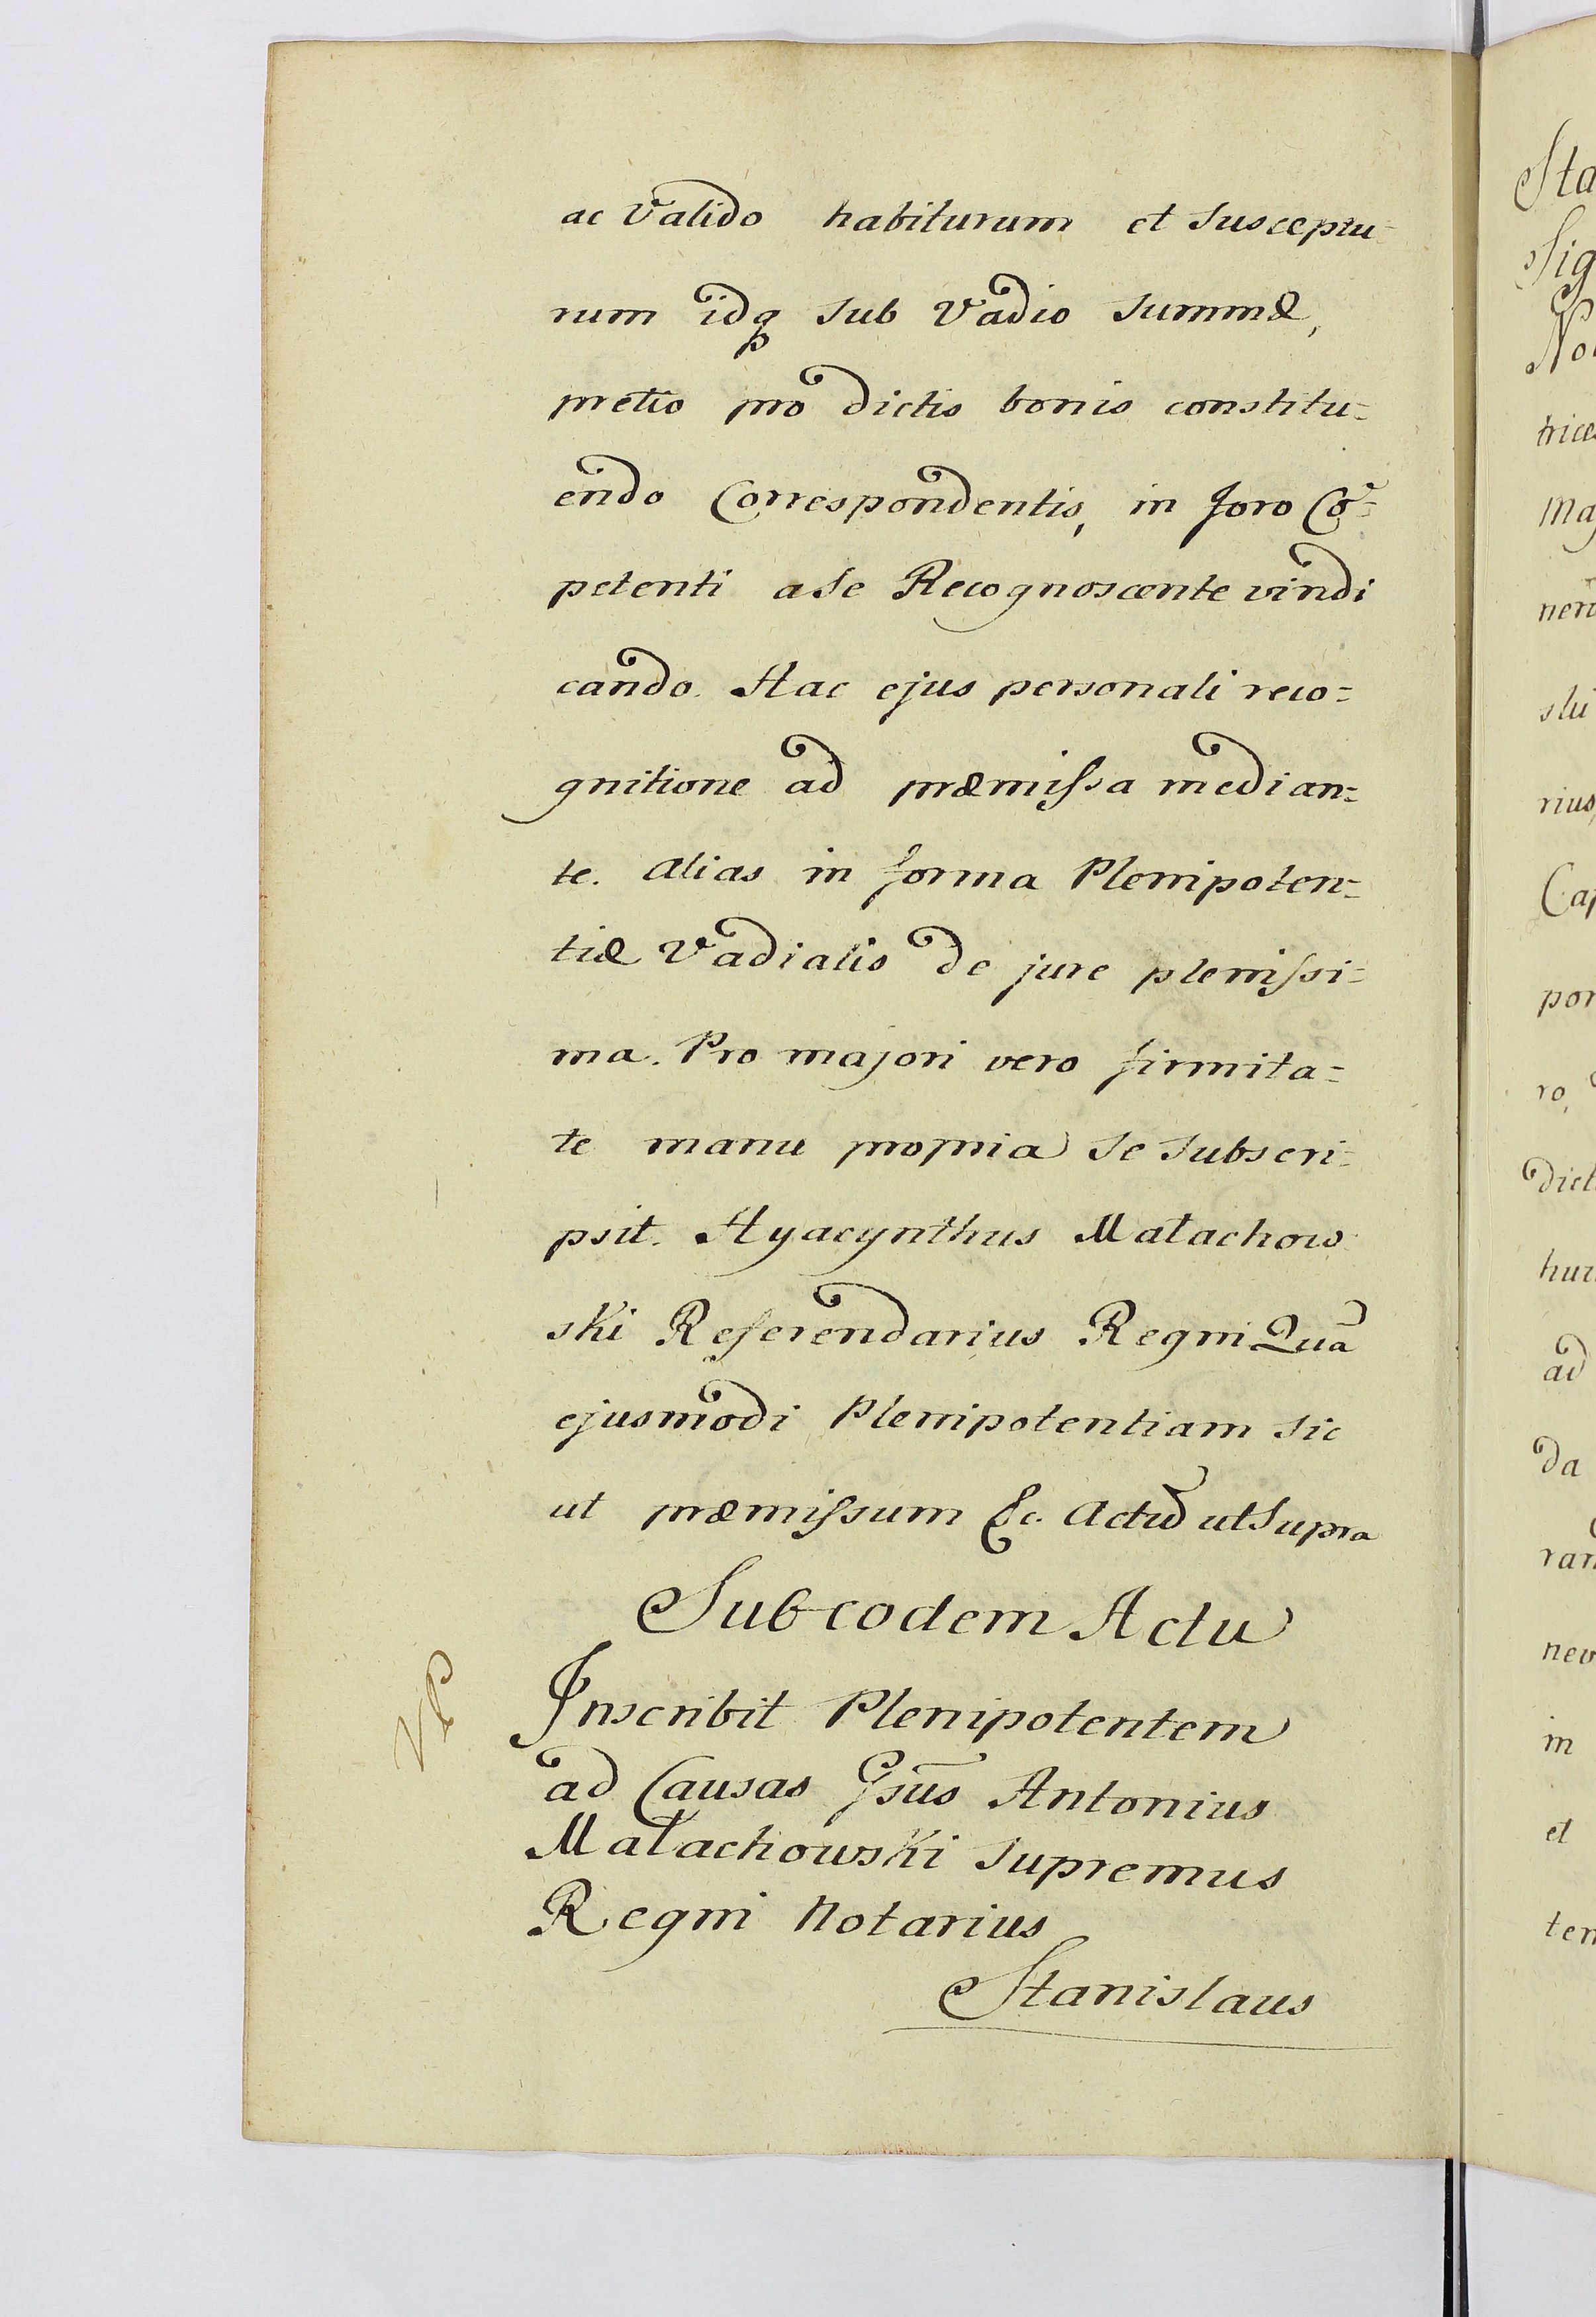 ac Valido habiturum et susceptu-
rum idq sub Vadio summæ,
pretio pro dictis bonis constitu=
endo Correspondentis, in foro Cõ=
petenti a se Recognoscente vindi
cando. Hac ejus personali reco=
gnitione ad præmissa median=
te. alias in forma Plenipoten=
tiæ Vadialis de jure plenissi=
ma. Pro majori vero firmita=
te manu propria se subscri=
psit. Hyacynthus Małachow
ski Referendarius Regni Quã
ejusmodi Plenipotentiam sic
ut præmissum &c. Actũ ut supra
Sub eodem Actu
VP
Inscribit Plenipotentem
ad Causas Gsũs Antonius
Małachowski supremus
Regni Notarius
Stanislaus
Sta
Sig
No
trice
Maj
neri
slu
rius
Cap
por
ro,
dict
hur
ad
da
ran
nev
in
et
ten